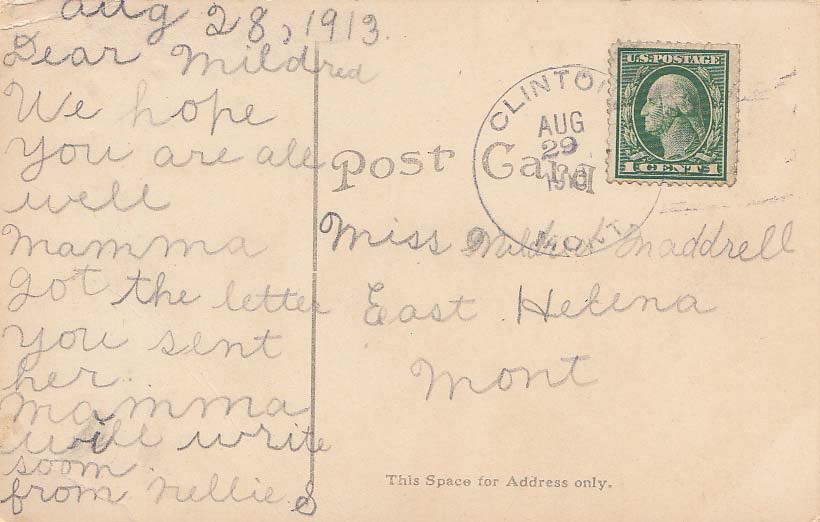 Aug 28, 1913.
Dear Mildred
We hope
you are all
well
Mamma
got the letter
you sent
her.
Mamma
will write
soom.
from Nellie S
U.S. POSTAGE
1 CENT 1
CLINTON
AUG
29
1913
MONT.
Post Card
Miss Mildred Maddrell
East Helena
Mont
This Space for Address only.